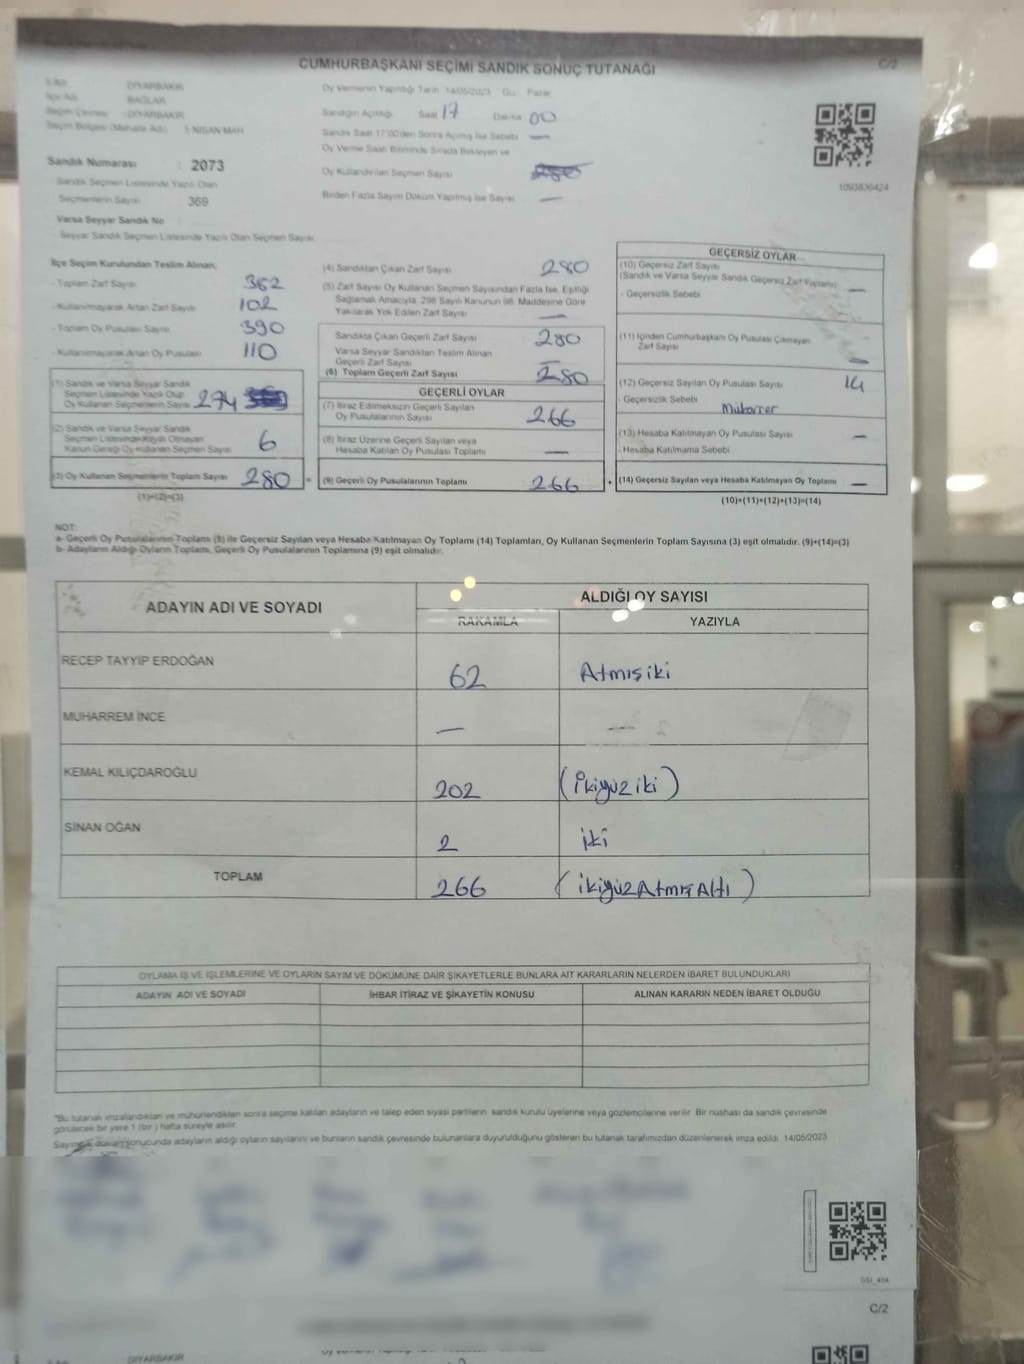 CUMHURBAŞKANI SEÇİMİ SANDIK SONUÇ TUTANAĞI
C/2
DİYARBAKIR
BAĞLAR
DİYARBAKIR
5 NİSAN MAH
Sandık Numarası : 2073
Sandık Seçmen Listesinde Yazılı Olan
Seçmenlerin Sayısı 369
Varsa Seyyar Sandık No
- Seyyar Sandık Seçmen Listesinde Yazılı Olan Seçmen Sayısı:
Oy Vermenin Yapıldığı Tarih 14/05/2023 Gün: Pazar
Sandığın Açıldığı Saat 17 Dakika 00
Sandık Saat 17:00'den Sonra Açılmış İse Sebebi —
Oy Verme Saati Bitiminde Sırada Bekleyen ve
Oy Kullandırılan Seçmen Sayısı
Birden Fazla Sayım Döküm Yapılmış İse Sayısı —
1093836424
İlçe Seçim Kurulundan Teslim Alınan;
- Toplam Zarf Sayısı 362
- Kullanılmayarak Artan Zarf Sayısı 102
- Toplam Oy Pusulası Sayısı 390
- Kullanılmayarak Artan Oy Pusulası 110
(1) Sandık ve Varsa Seyyar Sandık
Seçmen Listesinde Yazılı Olup
Oy Kullanan Seçmenlerin Sayısı 274
(2) Sandık ve Varsa Seyyar Sandık
Seçmen Listesinde Kayıtlı Olmayan
Kanun Gereği Oy Kullanan Seçmen Sayısı 6
(3) Oy Kullanan Seçmenlerin Toplam Sayısı 280 =
(1)+(2)=(3)
(4) Sandıktan Çıkan Zarf Sayısı 280
(5) Zarf Sayısı Oy Kullanan Seçmen Sayısından Fazla İse, Eşitliği
Sağlamak Amacıyla, 298 Sayılı Kanunun 98. Maddesine Göre
Yakılarak Yok Edilen Zarf Sayısı —
Sandıkta Çıkan Geçerli Zarf Sayısı 280
Varsa Seyyar Sandıktan Teslim Alınan
Geçerli Zarf Sayısı —
(6) Toplam Geçerli Zarf Sayısı 280
GEÇERLİ OYLAR
(7) İtiraz Edilmeksizin Geçerli Sayılan
Oy Pusulalarının Sayısı 266
(8) İtiraz Üzerine Geçerli Sayılan veya
Hesaba Katılan Oy Pusulası Toplamı —
(9) Geçerli Oy Pusulalarının Toplamı 266 +
GEÇERSİZ OYLAR
(10) Geçersiz Zarf Sayısı
(Sandık ve Varsa Seyyar Sandık Geçersiz Zarf Toplamı) —
- Geçersizlik Sebebi
(11) İçinden Cumhurbaşkanı Oy Pusulası Çıkmayan
Zarf Sayısı —
(12) Geçersiz Sayılan Oy Pusulası Sayısı 14
- Geçersizlik Sebebi Mükarrer
(13) Hesaba Katılmayan Oy Pusulası Sayısı —
- Hesaba Katılmama Sebebi
(14) Geçersiz Sayılan veya Hesaba Katılmayan Oy Toplamı —
(10)+(11)+(12)+(13)=(14)
NOT:
a- Geçerli Oy Pusulalarının Toplamı (9) ile Geçersiz Sayılan veya Hesaba Katılmayan Oy Toplamı (14) Toplamları, Oy Kullanan Seçmenlerin Toplam Sayısına (3) eşit olmalıdır. (9)+(14)=(3)
b- Adayların Aldığı Oyların Toplamı, Geçerli Oy Pusulalarının Toplamına (9) eşit olmalıdır.
ADAYIN ADI VE SOYADI
ALDIĞI OY SAYISI
RAKAMLA YAZIYLA
RECEP TAYYİP ERDOĞAN 62 Atmışiki
MUHARREM İNCE — —
KEMAL KILIÇDAROĞLU 202 (İkiyüz iki)
SİNAN OĞAN 2 iki
TOPLAM 266 (ikiyüzAtmışAltı)
OYLAMA İŞ VE İŞLEMLERİNE VE OYLARIN SAYIM VE DÖKÜMÜNE DAİR ŞİKAYETLERLE BUNLARA AİT KARARLARIN NELERDEN İBARET BULUNDUKLARI
ADAYIN ADI VE SOYADI İHBAR İTİRAZ VE ŞİKAYETİN KONUSU ALINAN KARARIN NEDEN İBARET OLDUĞU
*Bu tutanak imzalandıktan ve mühürlendikten sonra seçime katılan adayların ve talep eden siyasi partilerin sandık kurulu üyelerine veya gözlemcilerine verilir. Bir nüshası da sandık çevresinde
görülecek bir yere 1 (bir) hafta süreyle asılır.
Sayım ve döküm sonucunda adayların aldığı oyların sayılarını ve bunların sandık çevresinde bulunanlara duyurulduğunu gösteren bu tutanak tarafımızdan düzenlenerek imza edildi. 14/05/2023
C/2
DİYARBAKIR